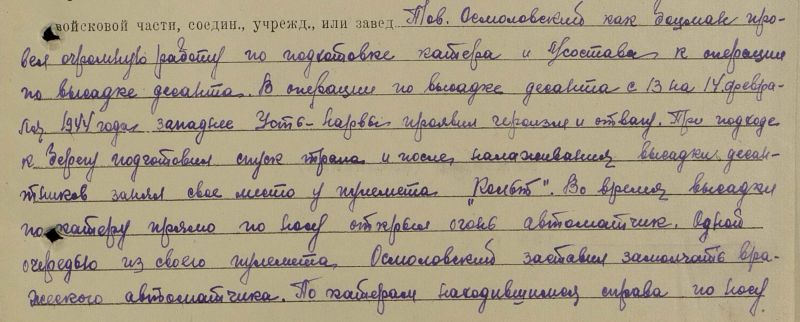 войсковой части, соедин., учрежд., или завед. Тов. Осмоловский как боцман про-
вел огромную работу по подготовке катера и л/состава к операции
по высадке десанта. В операции по высадке десанта с 13 на 14 февра-
ля 1944 года западнее Усть-Нарвы проявил героизм и отвагу. При подходе
к берегу подготовил спуск трапа и после налаживания высадки десан-
тников занял свое место у пулемета „Кольт". Во время высадки
по катеру прямо по носу открыл огонь автоматчик. Одной
очередью из своего пулемета Осмоловский заставил замолчать вра-
жеского автоматчика. По катерам находившимся справа по носу